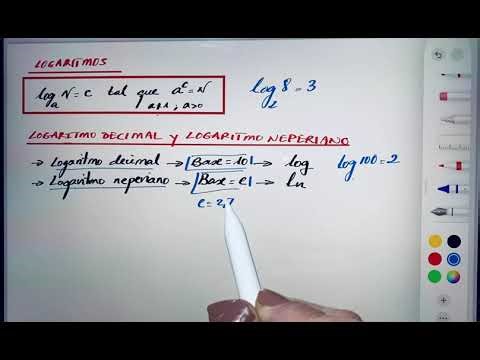 LOGARITMOS
log_a N = c tal que a^c = N
a≠1 ; a>0
log_2 8 = 3
LOGARITMO DECIMAL y LOGARITMO NEPERIANO
→ Logaritmo decimal → |Base = 10| → log log 100 = 2
→ Logaritmo neperiano → |Base = e| → ln
e = 2,7